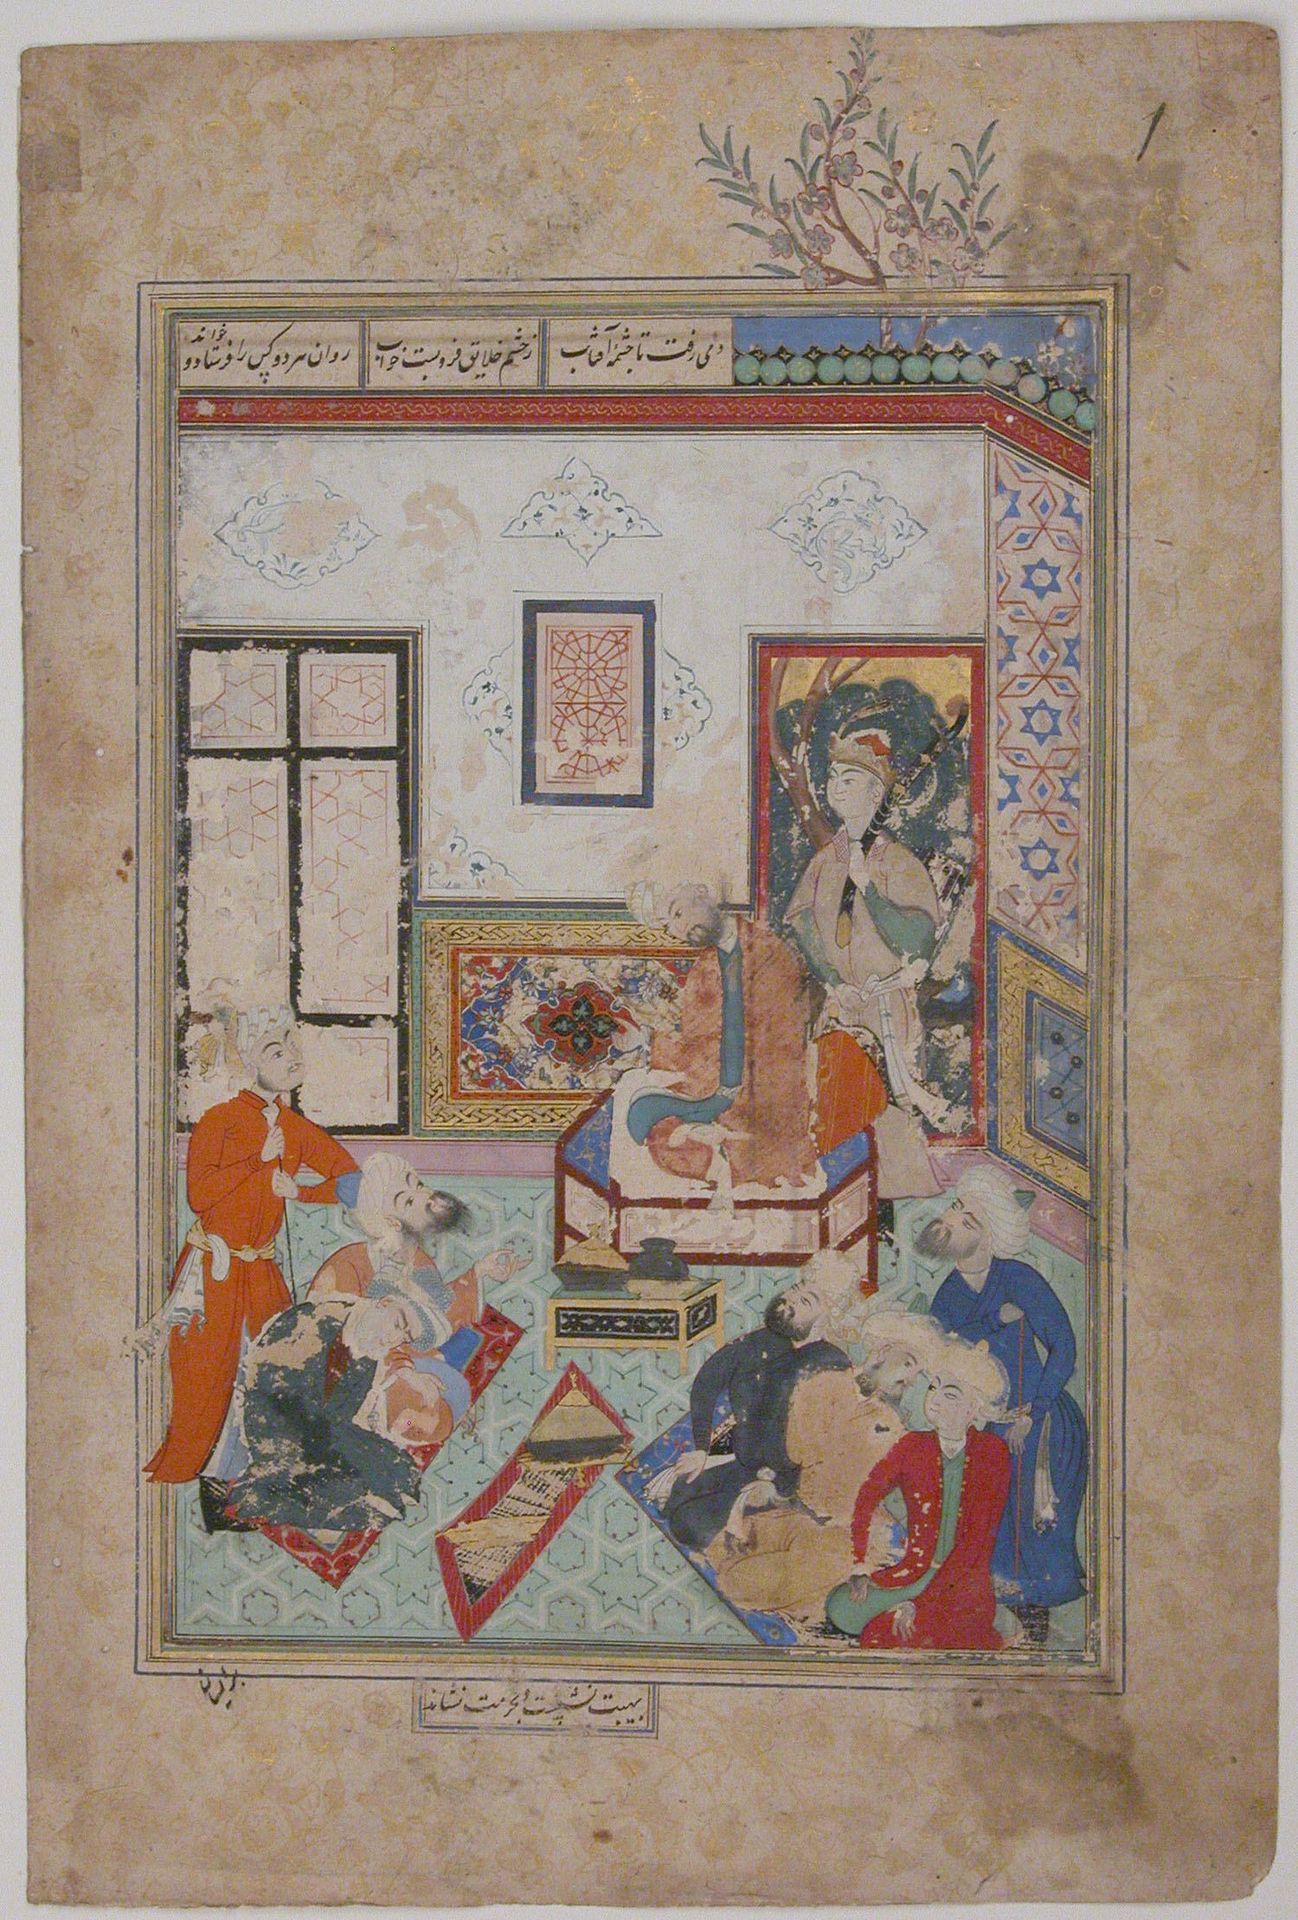 دمی رفت تا چشمهٔ آفتاب
ز چشم خلایق فرو شست خواب
روان هر دو کس را فرستاد و خواند
بهیبت نشست و بحرمت نشاند
برایشان